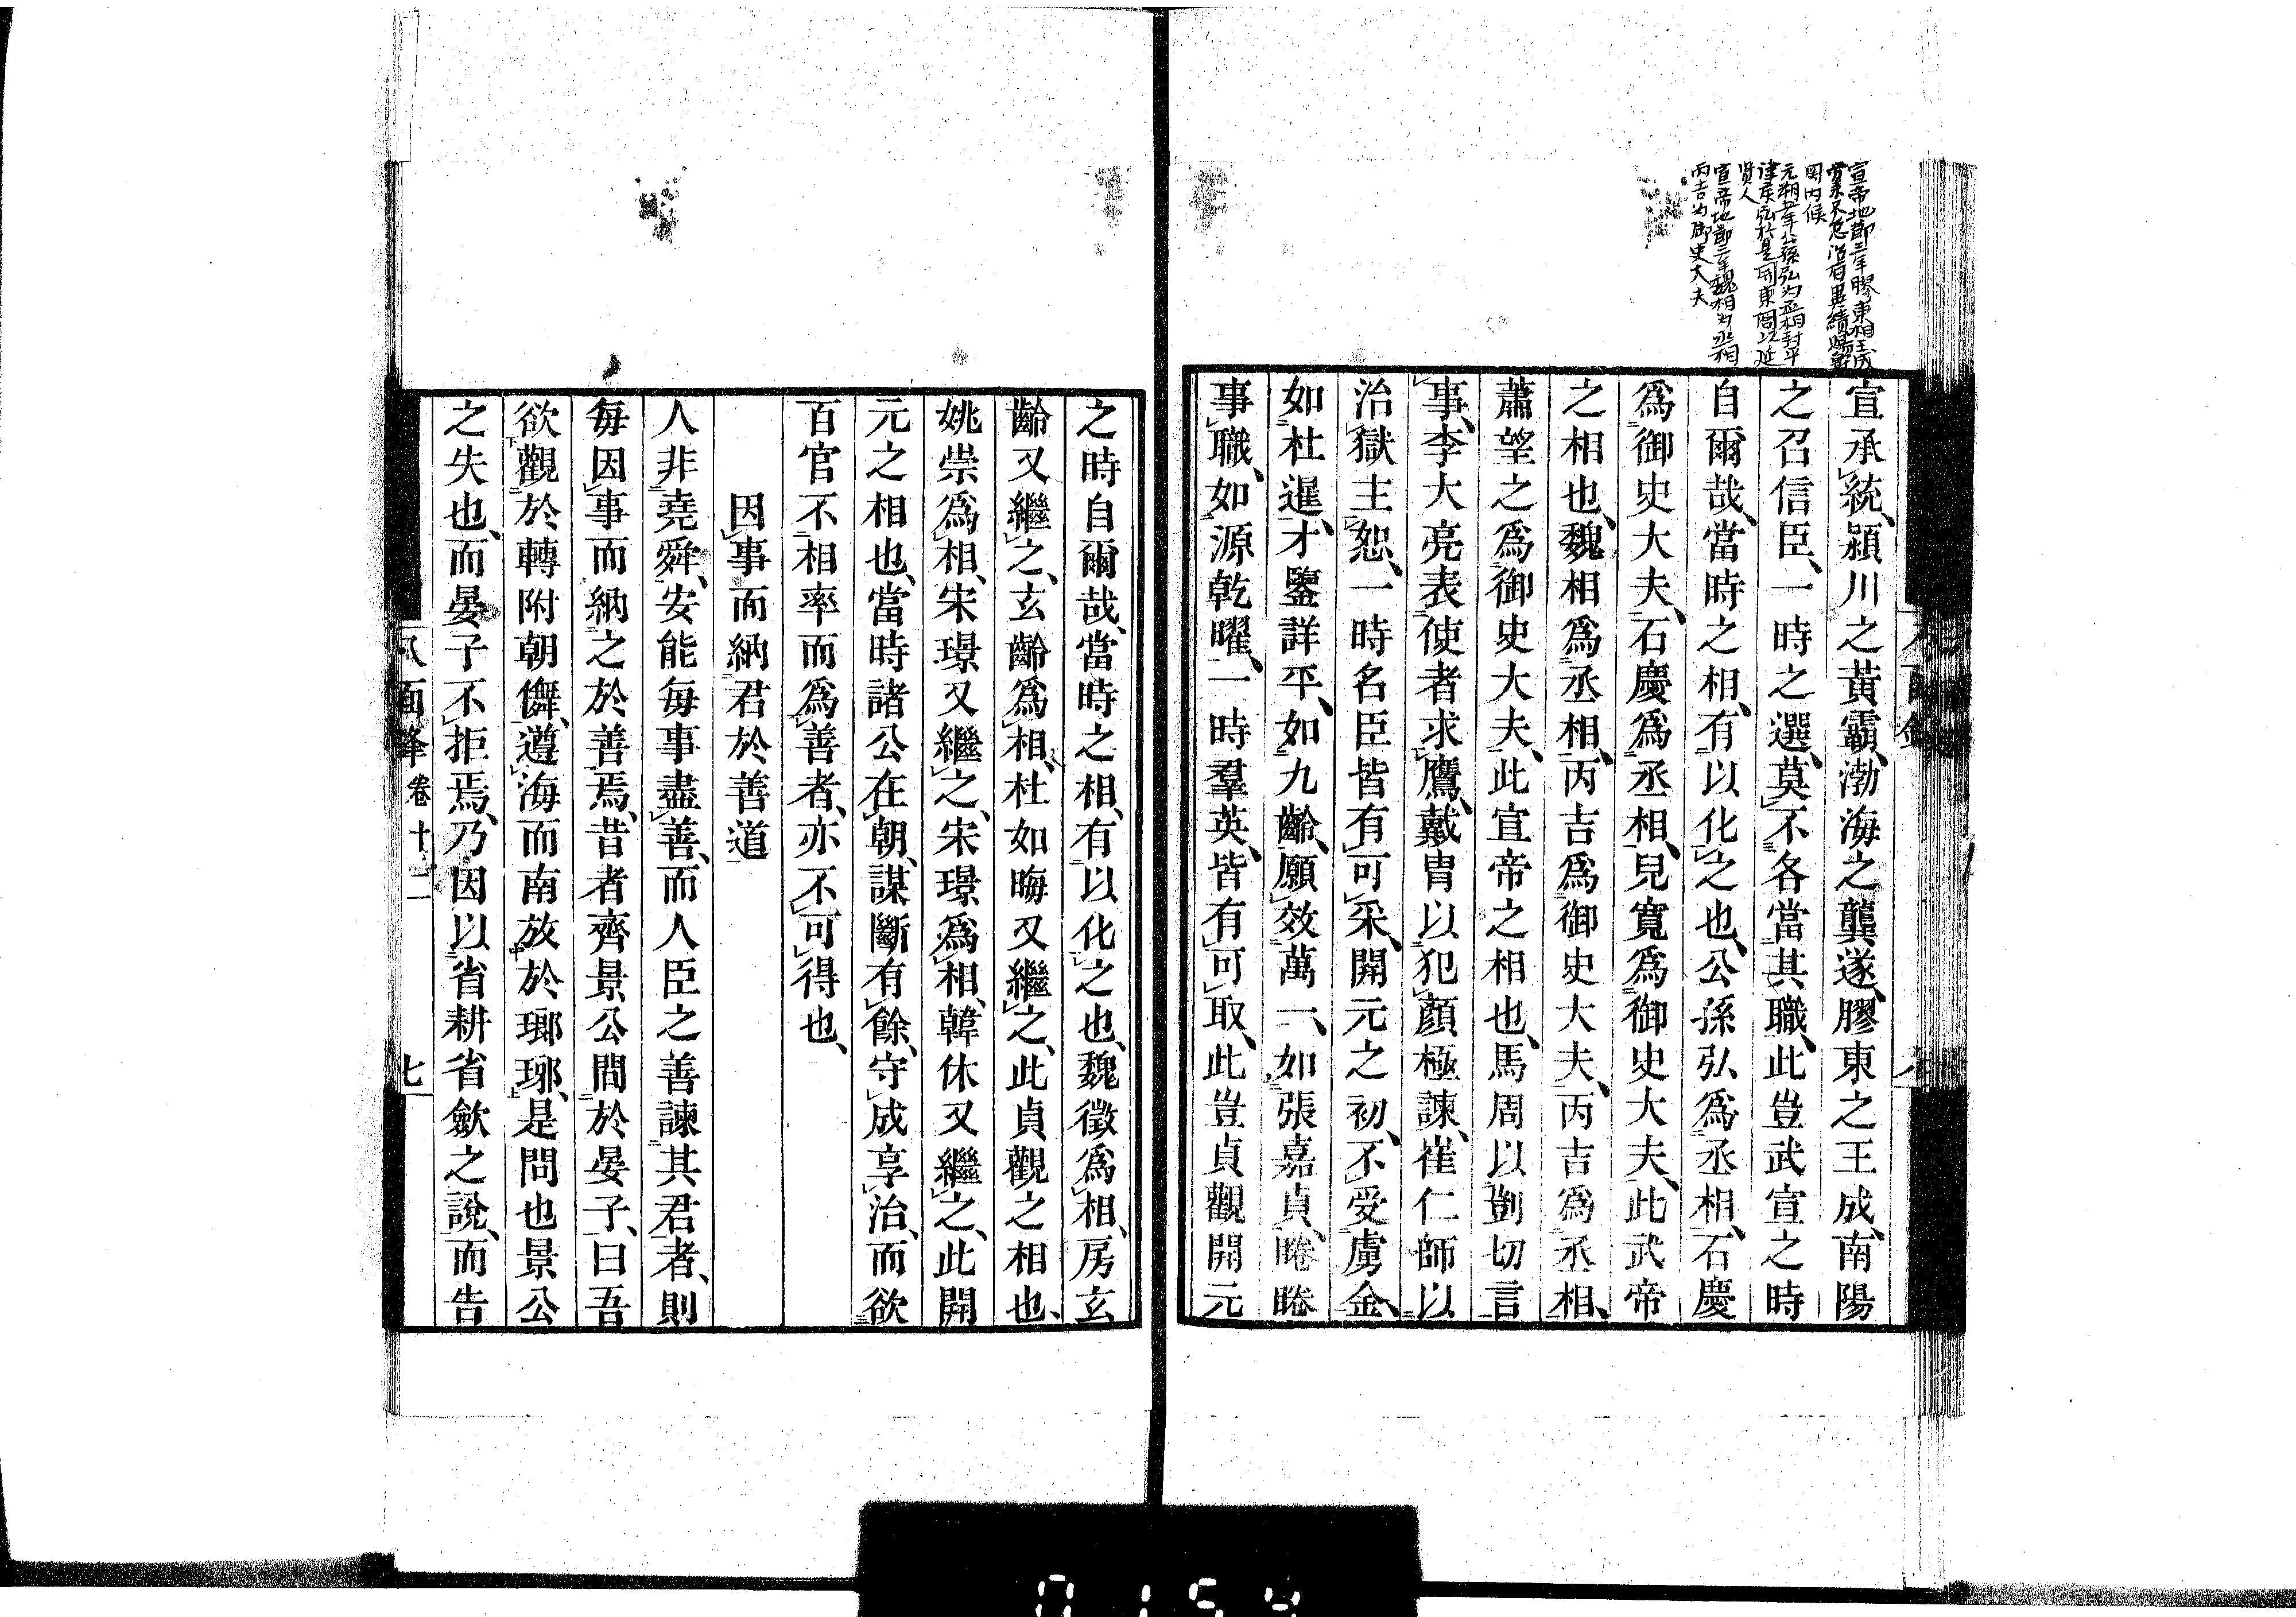 宣帝地節三年膠東相王成
勞來不怠治有異績賜爵
関内侯
元朔五年公孫弘为丞相封平
津侯弘於是開東閤以延
贤人
宣帝地節三年魏相为丞相
丙吉为御史大夫
宣承統、潁川之黃霸、渤海之龔遂、膠東之王成、南陽
之召信臣、一時之選、莫不各當其職、此豈武宣之時
自爾哉、當時之相、有以化之也、公孫弘爲丞相、石慶
爲御史大夫、石慶爲丞相、兒寬爲御史大夫、此武帝
之相也、魏相爲丞相、丙吉爲御史大夫、丙吉爲丞相、
蕭望之爲御史大夫、此宣帝之相也、馬周以剴切言
事、李大亮表使者求鷹、戴胄以犯顏極諫、崔仁師以
治獄主恕、一時名臣皆有可采、開元之初、不受虜金、
如杜暹、才鑒詳平、如九齡、願效萬一、如張嘉貞、睠睠
事職、如源乾曜、一時羣英、皆有可取、此豈貞觀開元
之時自爾哉、當時之相、有以化之也、魏徵爲相、房玄
齡又繼之、玄齡爲相、杜如晦又繼之、此貞觀之相也、
姚崇爲相、宋璟又繼之、宋璟爲相、韓休又繼之、此開
元之相也、當時諸公在朝、謀斷有餘、守成享治、而欲
百官不相率而爲善者、亦不可得也、
因事而納君於善道
人非堯舜、安能每事盡善、而人臣之善諫其君者、則
每因事而納之於善焉、昔者齊景公問於晏子、曰吾
欲觀於轉附朝儛、遵海而南放於瑯琊、是問也景公
之失也、而晏子不拒焉、乃因以省耕省歛之說、而告
八面鋒 卷十二 七
0154